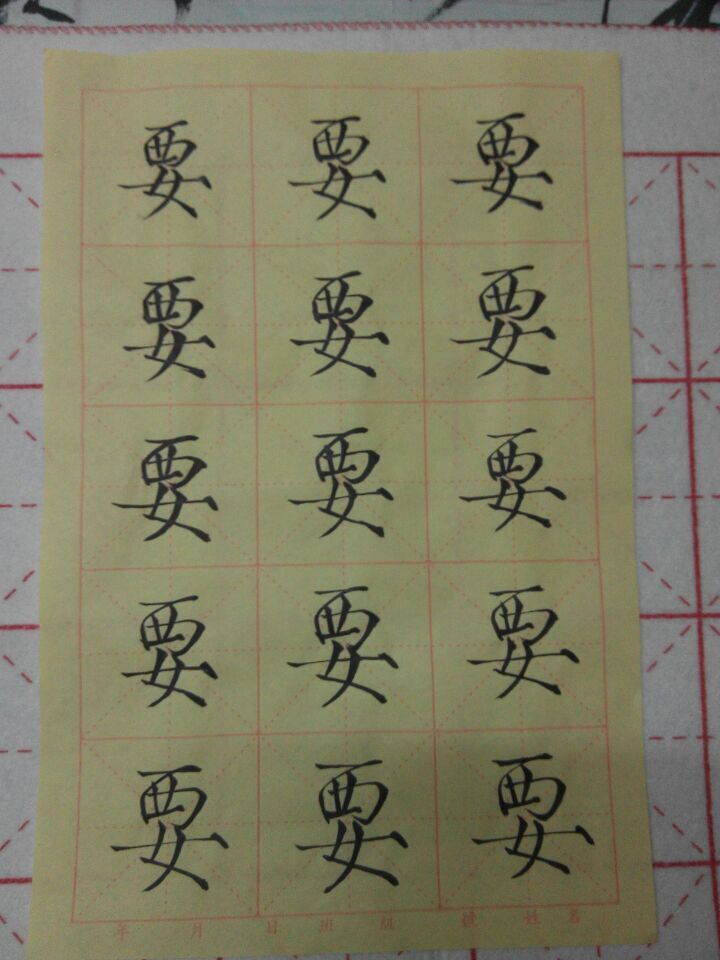 要 要 要
要 要 要
要 要 要
要 要 要
要 要 要
年 月 日 班 级 姓名